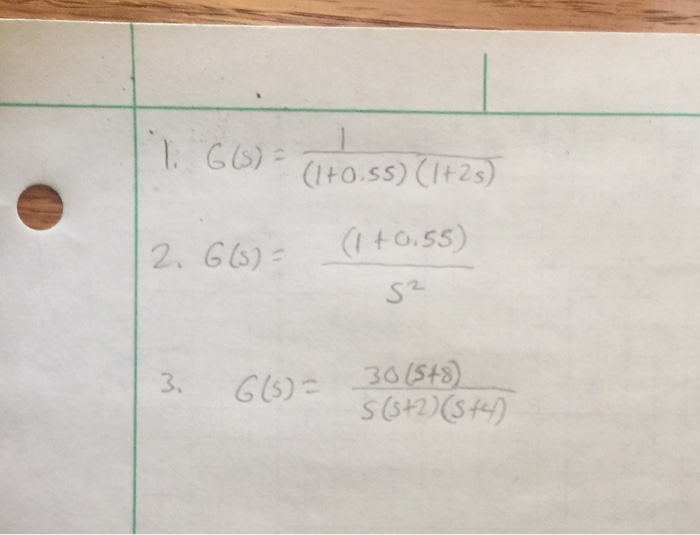 1. G(s) = 1 / (1+0.5s)(1+2s)
2. G(s) = (1+0.5s) / s²
3. G(s) = 30(s+8) / s(s+2)(s+4)